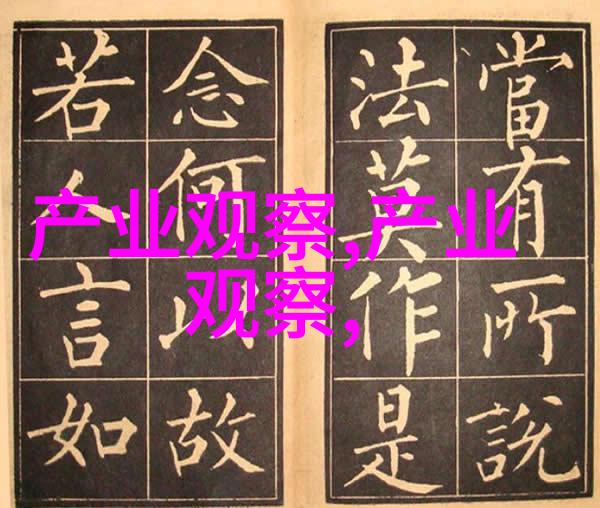 當有所說
法莫作是
念何以故
若人言如
产业观察,产业
观察,